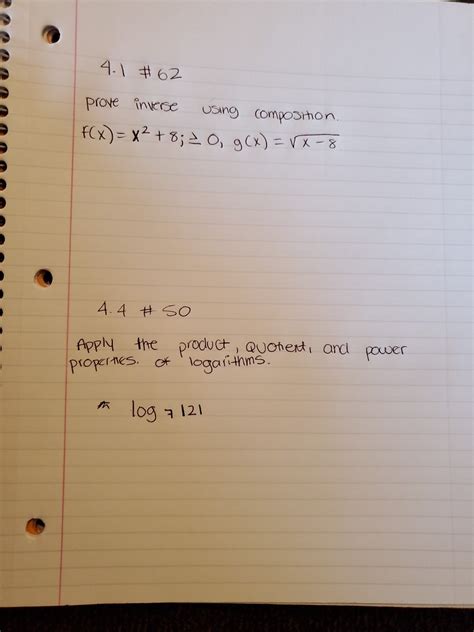 4.1 #62
prove inverse using composition.
f(x) = x² + 8; ≥ 0, g(x) = √x - 8
4.4 # 50
Apply the product, Quotient, and power
properties. of logarithms.
log 7 121